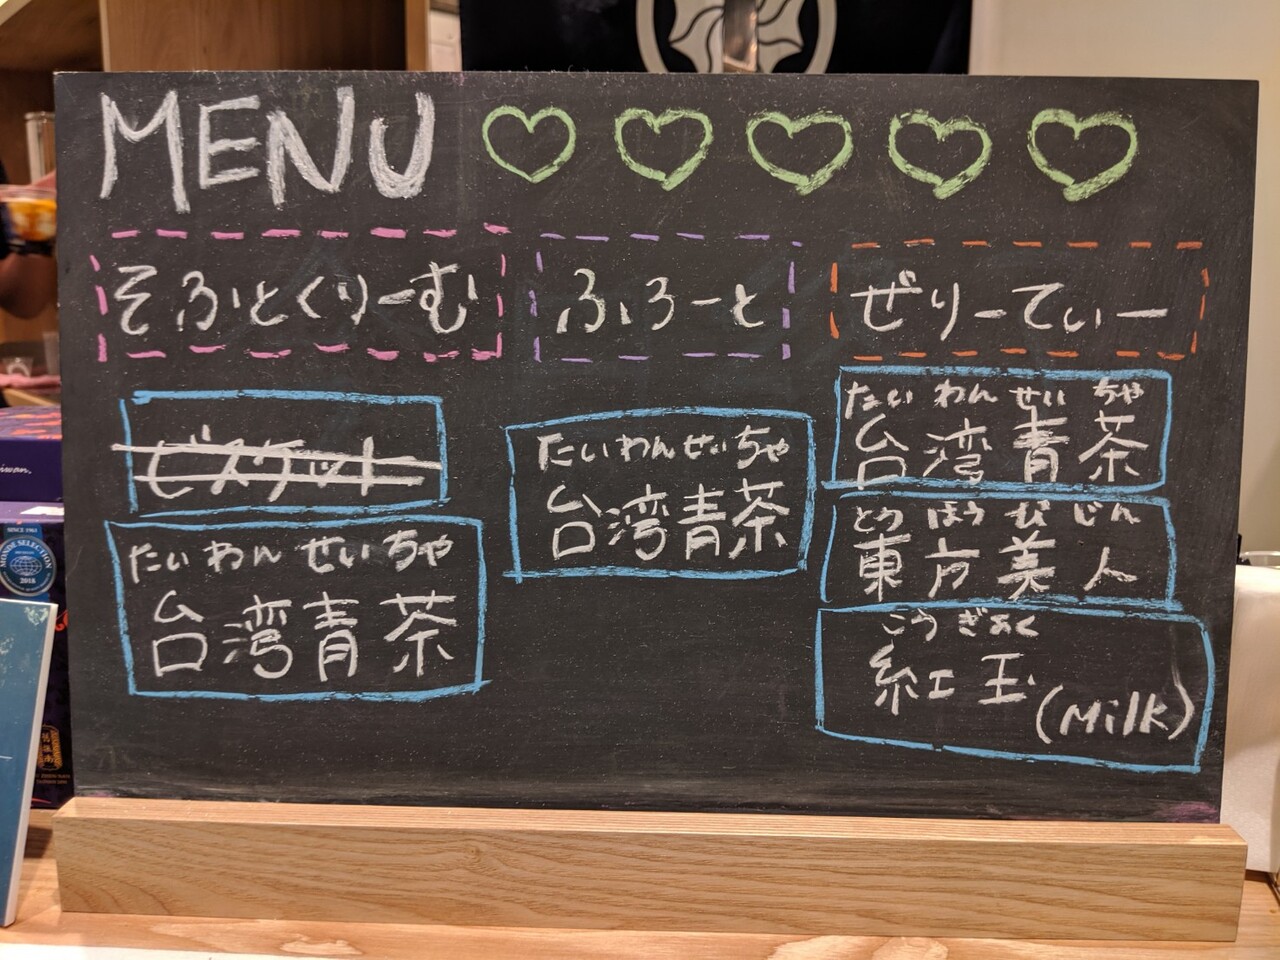 MENU
そふとくりーむ
ふろーと
ぜりーてぃー
ビスケット
たいわんせいちゃ
台湾青茶
たいわんせいちゃ
台湾青茶
たいわんせいちゃ
台湾青茶
とうほうびじん
東方美人
こうぎょく
紅玉(Milk)
iwan.
SINCE 1961
MONDE SELECTION
2018